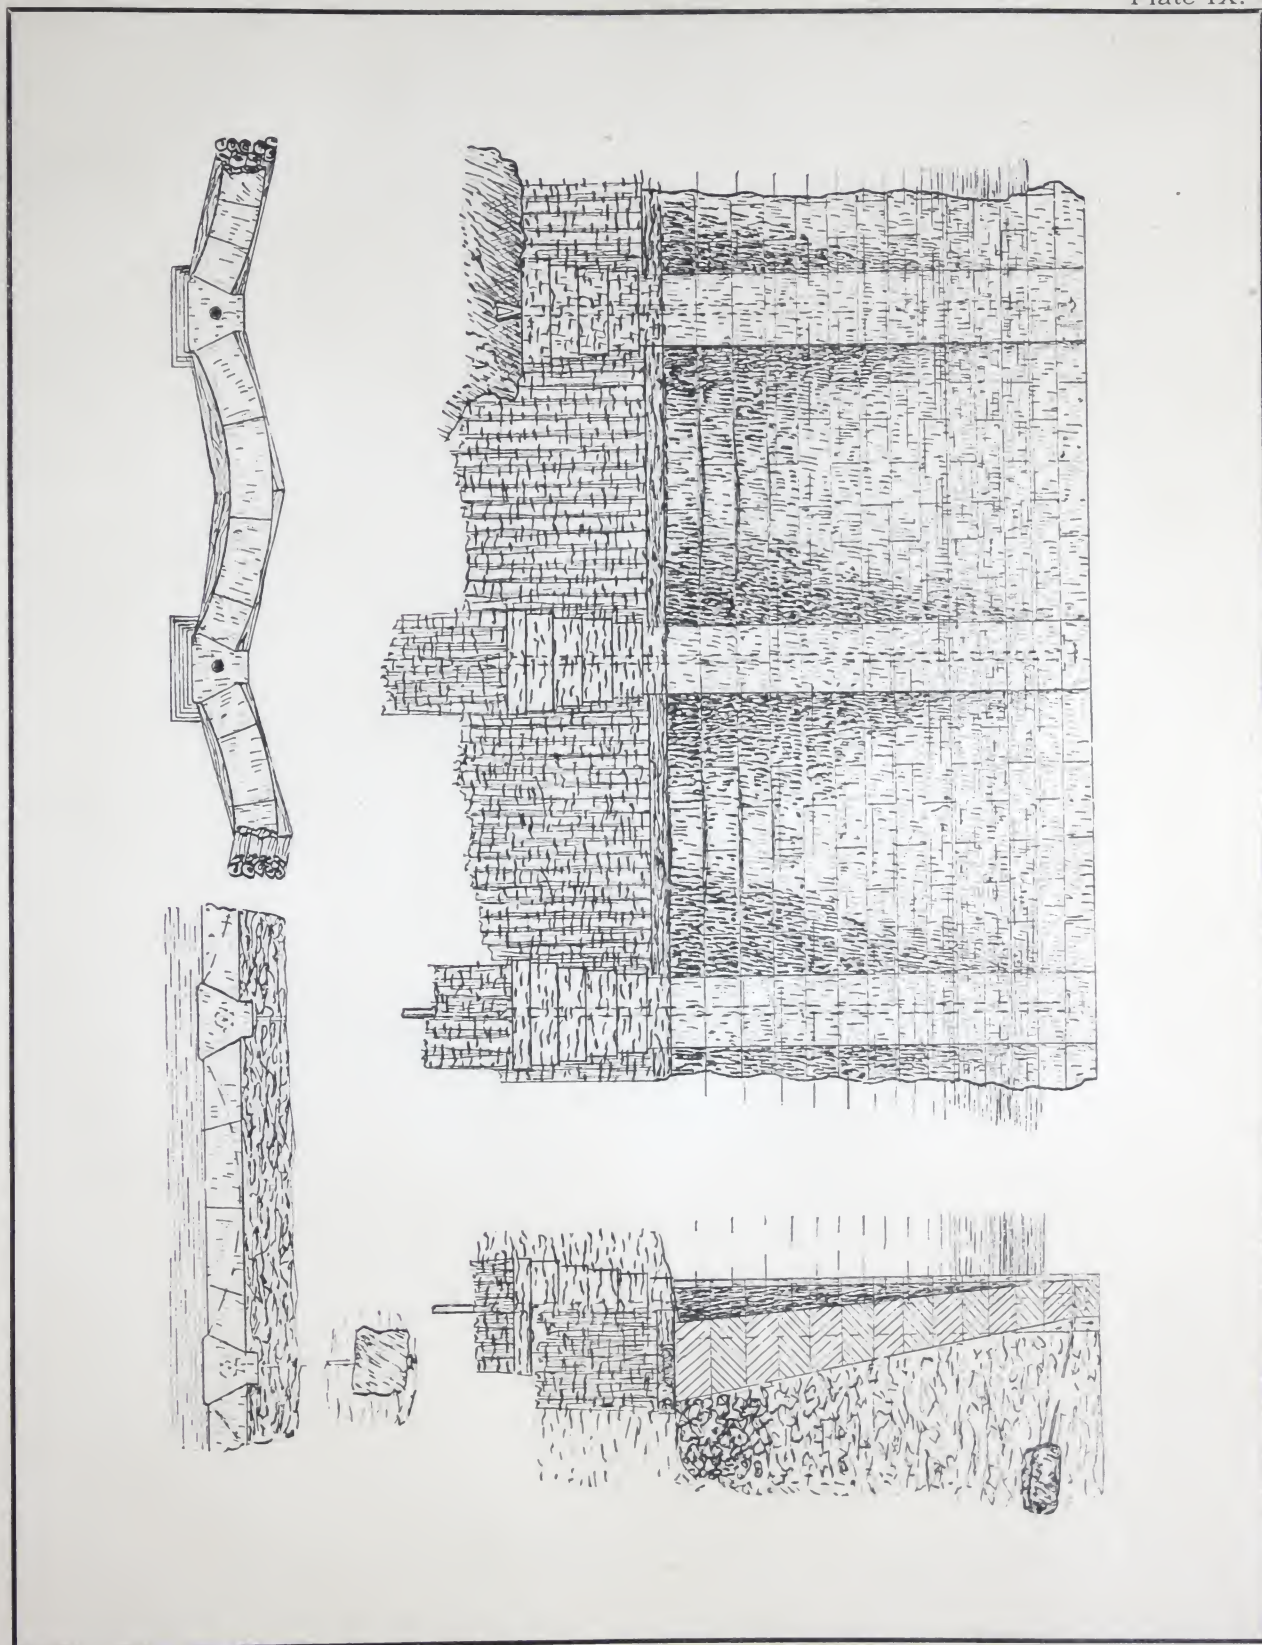 Plate IX.